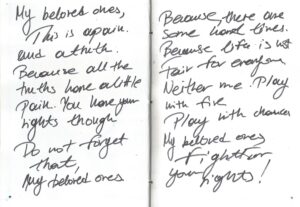 My beloved ones,
This is a pain.
and a truth.
Because all the
truths have a little
pain. You have your
rights though
Do not forget
that,
My beloved ones
Because, there are
some hard lives.
Because life is not
fair for everyone.
Neither me. Play
with fire
Play with chances
My beloved ones
Fight for
your rights!